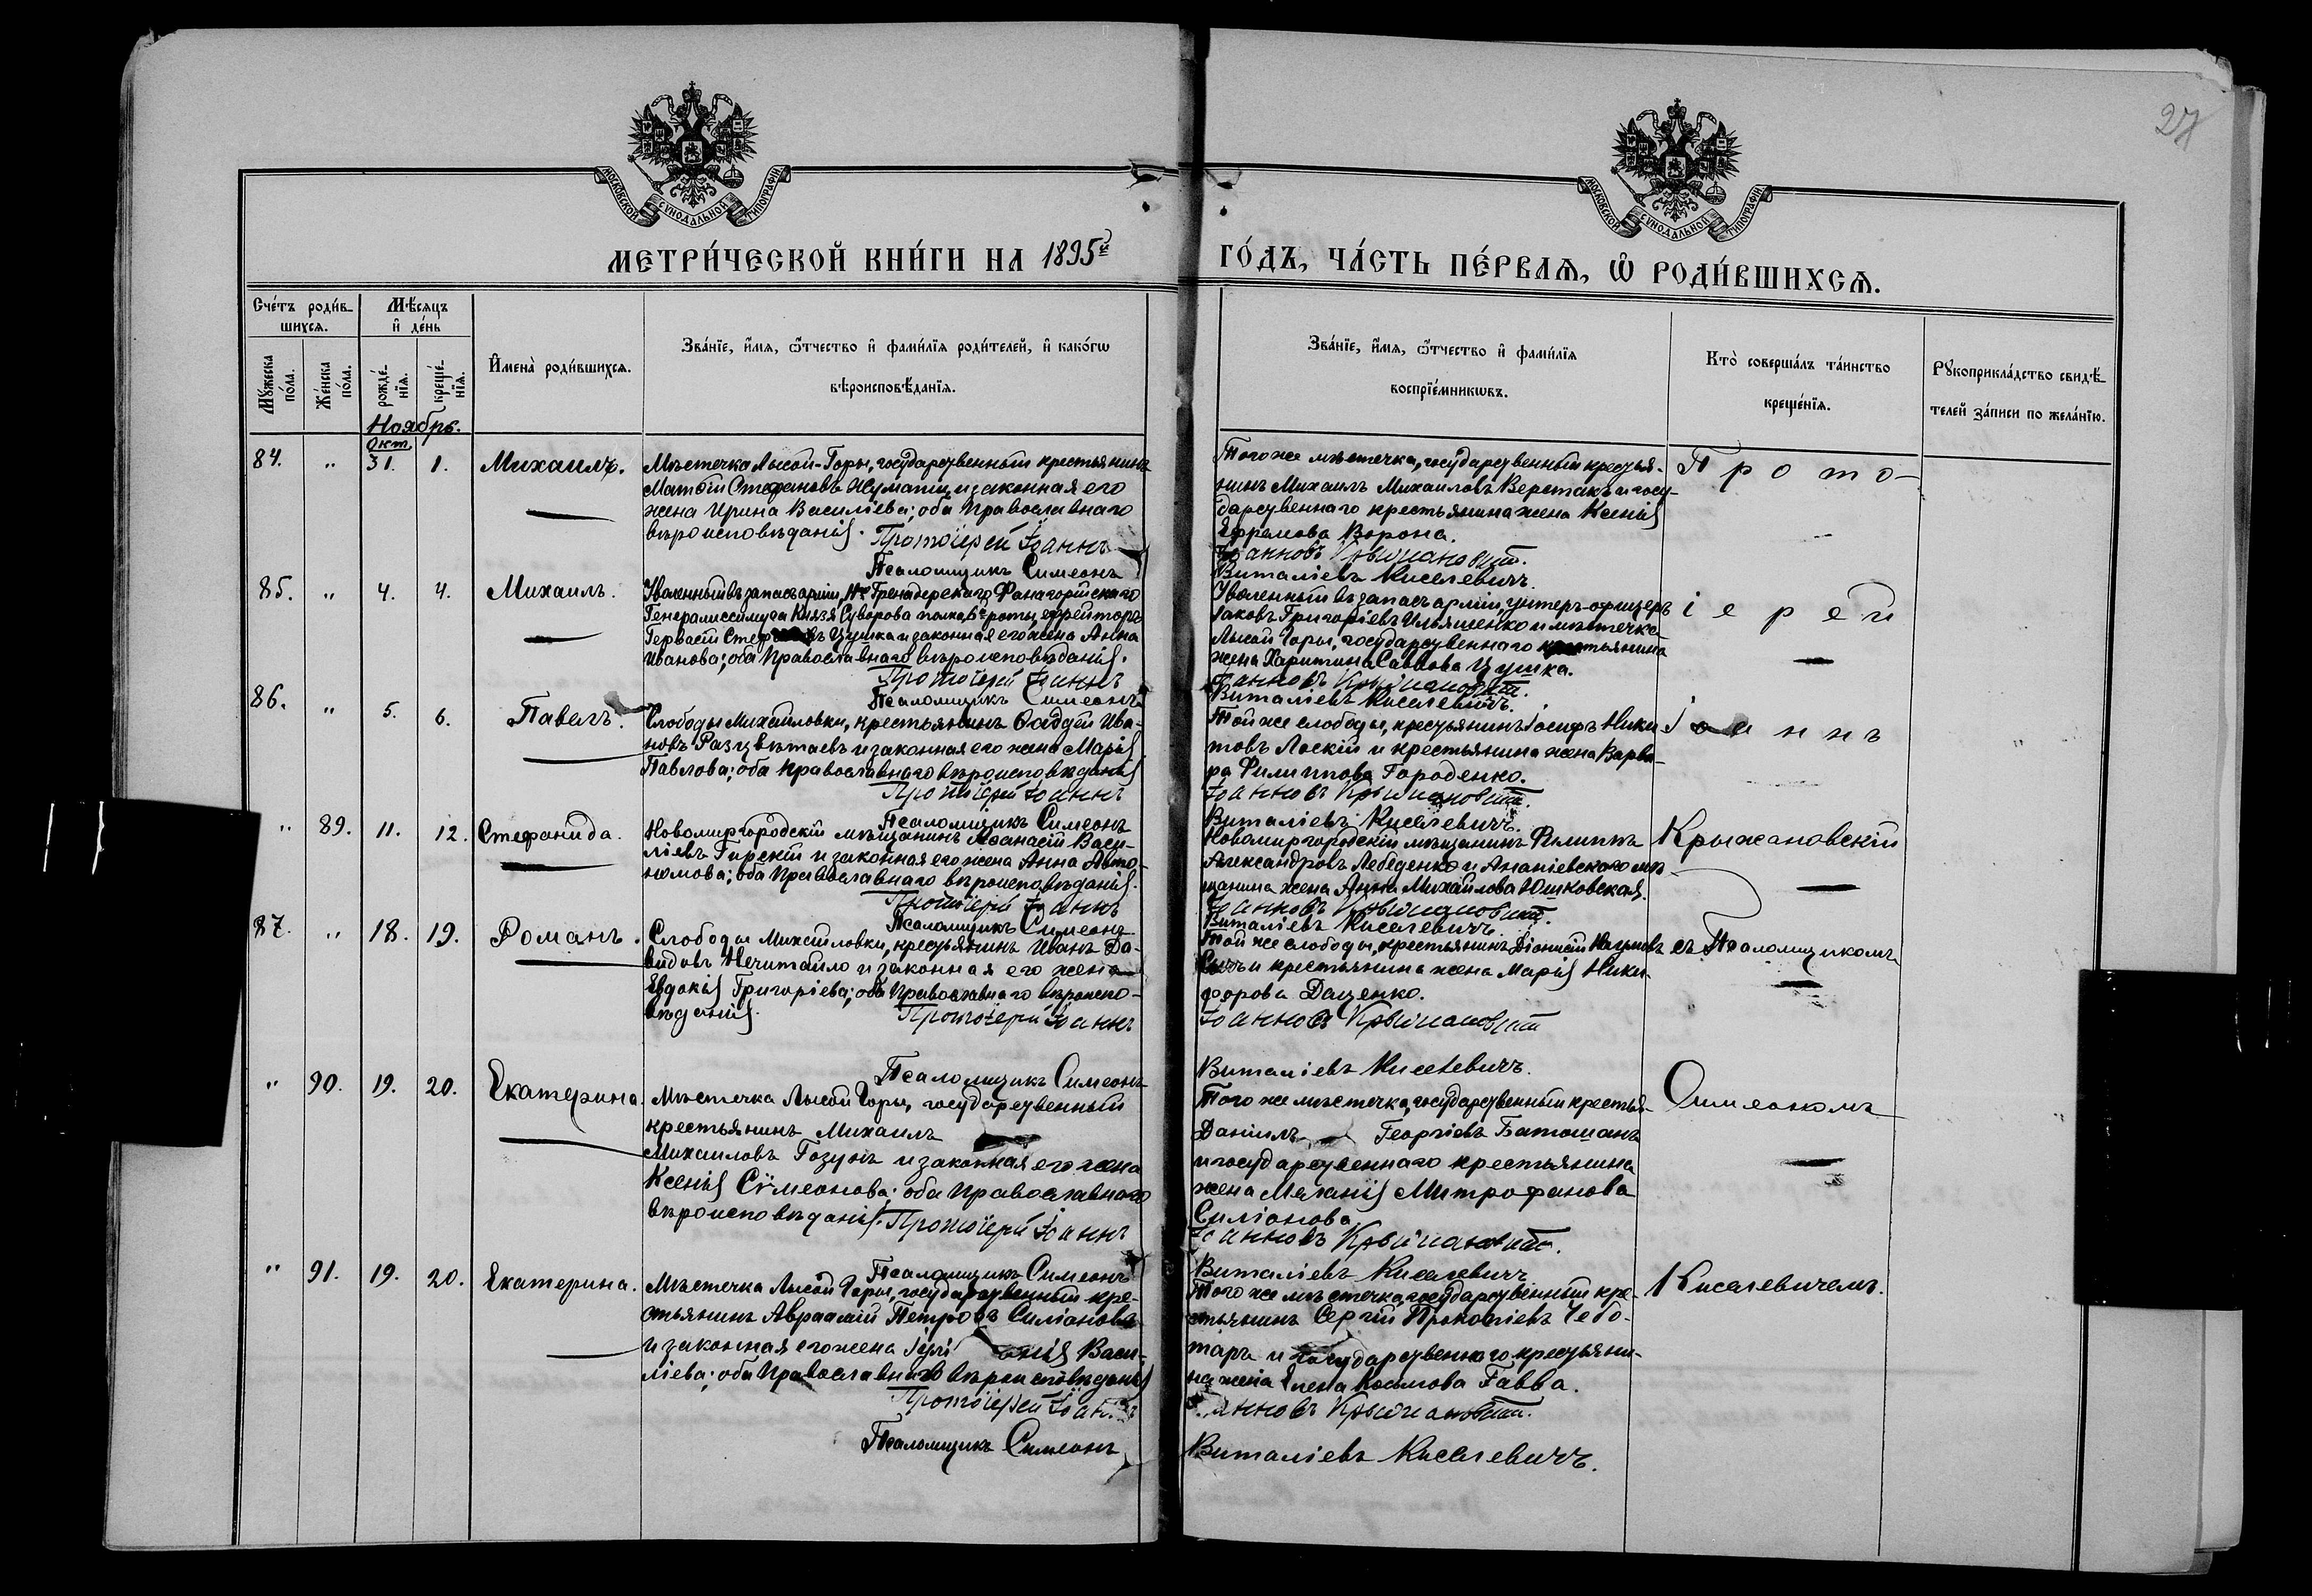 27
МОСКОВСКОЙ СѴНОДАЛЬНОЙ ТИПОГРАФІИ
МОСКОВСКОЙ СѴНОДАЛЬНОЙ ТИПОГРАФІИ
МЕТРИ́ЧЕСКОЙ КНИ́ГИ НА 1895й
ГО́ДЪ, ЧА́СТЬ ПЕ́РВАѦ, Ѽ РОДИ́ВШИХСѦ.
Сче́тъ роди́в-
шихсѧ.
Мѣ́сѧцъ
и҆ де́нь
Мꙋ́жеска по́ла.
Же́нска по́ла.
рожде́-нїѧ.
креще́-нїѧ.
И҆мена̀ роди́вшихсѧ.
Зва́нїе, и҆́мѧ, ѻ҆́тчество и҆ фами́лїѧ роди́телей, и҆ како́гѡ
вѣроисповѣ́данїѧ.
Зва́нїе, и҆́мѧ, ѻ҆́тчество и҆ фами́лїѧ
воспрїе́мникѡвъ.
Кто̀ соверша́лъ та́инство
креще́нїѧ.
Рꙋкоприкла́дство свидѣ́-
телей за́писи по жела́нїю.
Ноябрь.
Окт.
84. " 31. 1. Михаилъ.
Мѣстечка Лысой-Горы, государственный крестьянинъ
Матѳій Стефановъ и законная его
жена Ирина Василіева; оба Православнаго
вѣроисповѣданія. Протоіерей Іоаннъ
Псаломщикъ Симеонъ
Того же мѣстечка, государственный крестья-
нинъ Михаилъ Михаиловъ Верстакъ и госу-
дарственнаго крестьянина жена Ксенія
Ефремова Ворона.
Іоанновъ Крыжановскій.
Виталіевъ Киселевичъ.
Прото-
85. " 4. 4. Михаилъ.
Уволенный въ запасъ арміи, Гренадерскаго Фанагорійскаго
Генералиссимуса Князя Суворова полка, роты, ефрейторъ
Гервасій Цушка и законная его жена Анна
Иванова; оба Православнаго вѣроисповѣданія.
Протоіерей Іоаннъ
Псаломщикъ Симеонъ
Уволенный въ запасъ арміи, унтеръ-офицеръ
Іаковъ Григоріевъ Ильяшенко и мѣстечка
Лысой Горы, государственнаго крестьянина
жена Харитина Саввова Цушка.
Іоанновъ Крыжановскій.
Виталіевъ Киселевичъ.
іерей
86. " 5. 6. Павелъ.
Слободы Михайловки, крестьянинъ Ѳаддей Ива-
новъ Разцвѣтаевъ и законная его жена Марія
Павлова; оба Православнаго вѣроисповѣданія
Протоіерей Іоаннъ
Псаломщикъ Симеонъ
Той же слободы, крестьянинъ Іосифъ Ники-
товъ Лоскій и крестьянина жена Варва-
ра Филиппова Городенко.
Іоанновъ Крыжановскій.
Виталіевъ Киселевичъ.
Іоаннъ
"
" 89. 11. 12. Стефанида.
Новомиргородскій мѣщанинъ Аѳанасій Васи-
ліевъ Гирскій и законная его жена Анна Авто-
номова; оба Православнаго вѣроисповѣданія.
Протоіерей Іоаннъ
Псаломщикъ Симеонъ
Новомиргородскій мѣщанинъ Филиппъ
Александровъ Лебеденко и Ананіевскаго мѣ-
щанина жена Анна Михайлова Юшковская.
Іоанновъ Крыжановскій.
Виталіевъ Киселевичъ.
Крыжановскій
87. " 18. 19. Романъ.
Слободы Михайловки, крестьянинъ Иванъ Да-
видовъ Нечитайло и законная его жена
Евдокія Григоріева; оба Православнаго вѣроиспо-
вѣданія. Протоіерей Іоаннъ
Псаломщикъ Симеонъ
Той же слободы, крестьянинъ Діонисій Наумовъ
и крестьянина жена Марія Ники-
форова Даценко.
Іоанновъ Крыжановскій
Виталіевъ Киселевичъ.
съ Псаломщикомъ
" 90. 19. 20. Екатерина.
Мѣстечка Лысой Горы, государственный
крестьянинъ Михаилъ
Михаиловъ Гозунъ и законная его жена
Ксенія Сѵмеонова; оба Православнаго
вѣроисповѣданія. Протоіерей Іоаннъ
Псаломщикъ Симеонъ
Того же мѣстечка, государственный крестья-
Даніилъ Георгіевъ Батошанъ
и государственнаго крестьянина
жена Меланія Митрофанова
Силіонова
Іоанновъ Крыжановскій.
Виталіевъ Киселевичъ
Симеономъ
" 91. 19. 20. Екатерина.
Мѣстечка Лысой Горы, государственный кре-
стьянинъ Авраамій Петровъ Силіоновъ
и законная его жена Васи-
ліева; оба Православнаго вѣроисповѣданія
Протоіерей Іоаннъ
Псаломщикъ Симеонъ
Того же мѣстечка, государственный кре-
стьянинъ Сергій Прокопіевъ Чебо-
таръ и государственнаго крестьяни-
на жена Елена Косьмова Гавва.
Іоанновъ Крыжановскій.
Виталіевъ Киселевичъ.
Киселевичемъ.